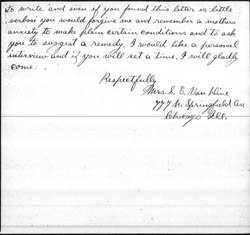 to write and even if you found this letter is little
verbose you would forgive me and remember a mothers
anxiety to make plain certain conditions and to ask
you to suggest a remedy. I would like a personal
interview and if you will set a time. I will gladly
come.
Respectfully
Mrs. S. E. Van Hine
777 N. Springfield Av.
Chicago Ill.